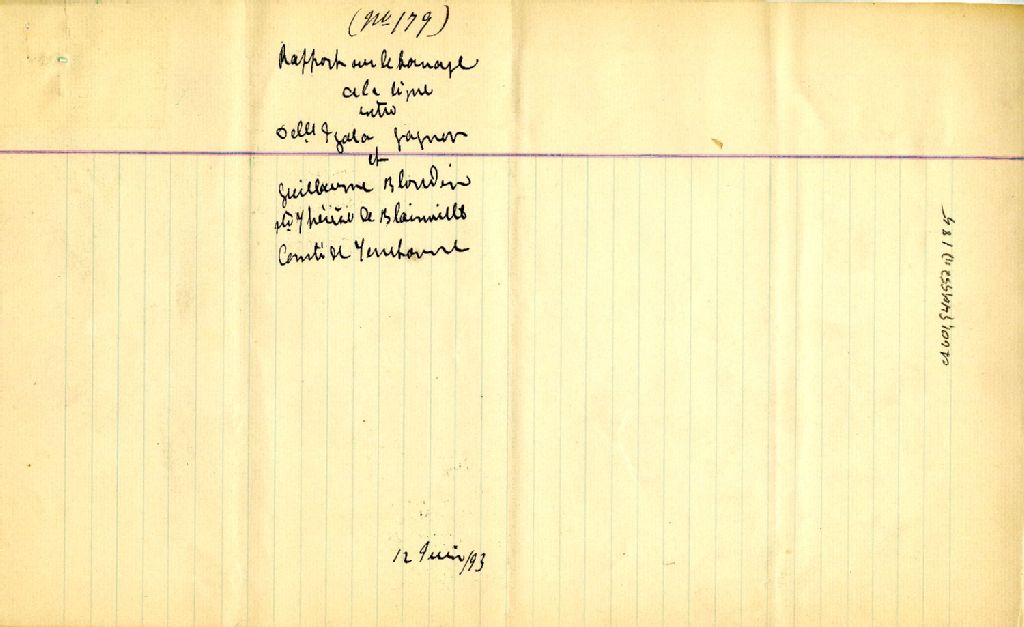 (No 179)
Rapport sur le bornage
de la ligne
entre
Delle Azala Gagnon
et
Guillaume Blondin
Ste Thérèse de Blainville
Comté de Terrebonne
12 Juin/93